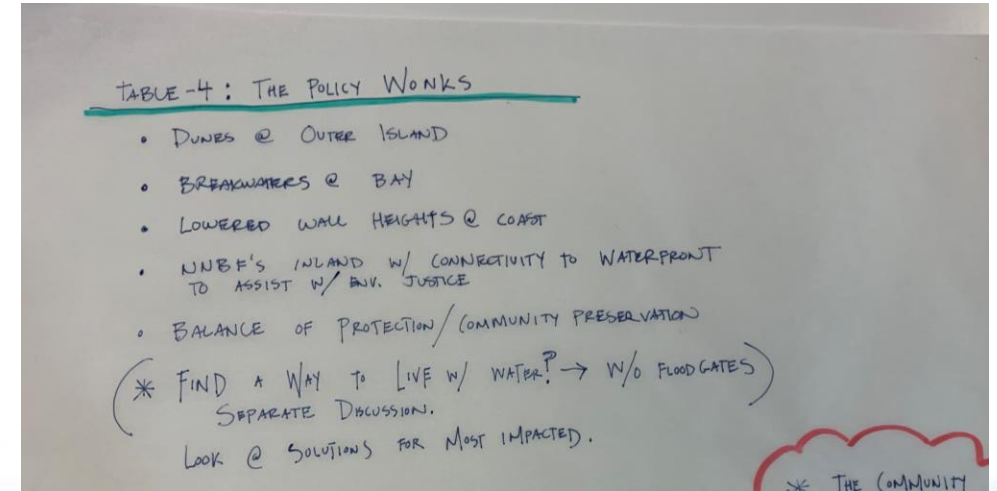 TABLE-4: THE POLICY WONKS
• DUNES @ OUTER ISLAND
• BREAKWATERS @ BAY
• LOWERED WALL HEIGHTS @ COAST
• NNBF'S INLAND W/ CONNECTIVITY TO WATERFRONT
TO ASSIST W/ ENV. JUSTICE
• BALANCE OF PROTECTION/COMMUNITY PRESERVATION
(* FIND A WAY TO LIVE W/ WATER? → W/O FLOODGATES)
SEPARATE DISCUSSION.
LOOK @ SOLUTIONS FOR MOST IMPACTED.
* THE COMMUNITY